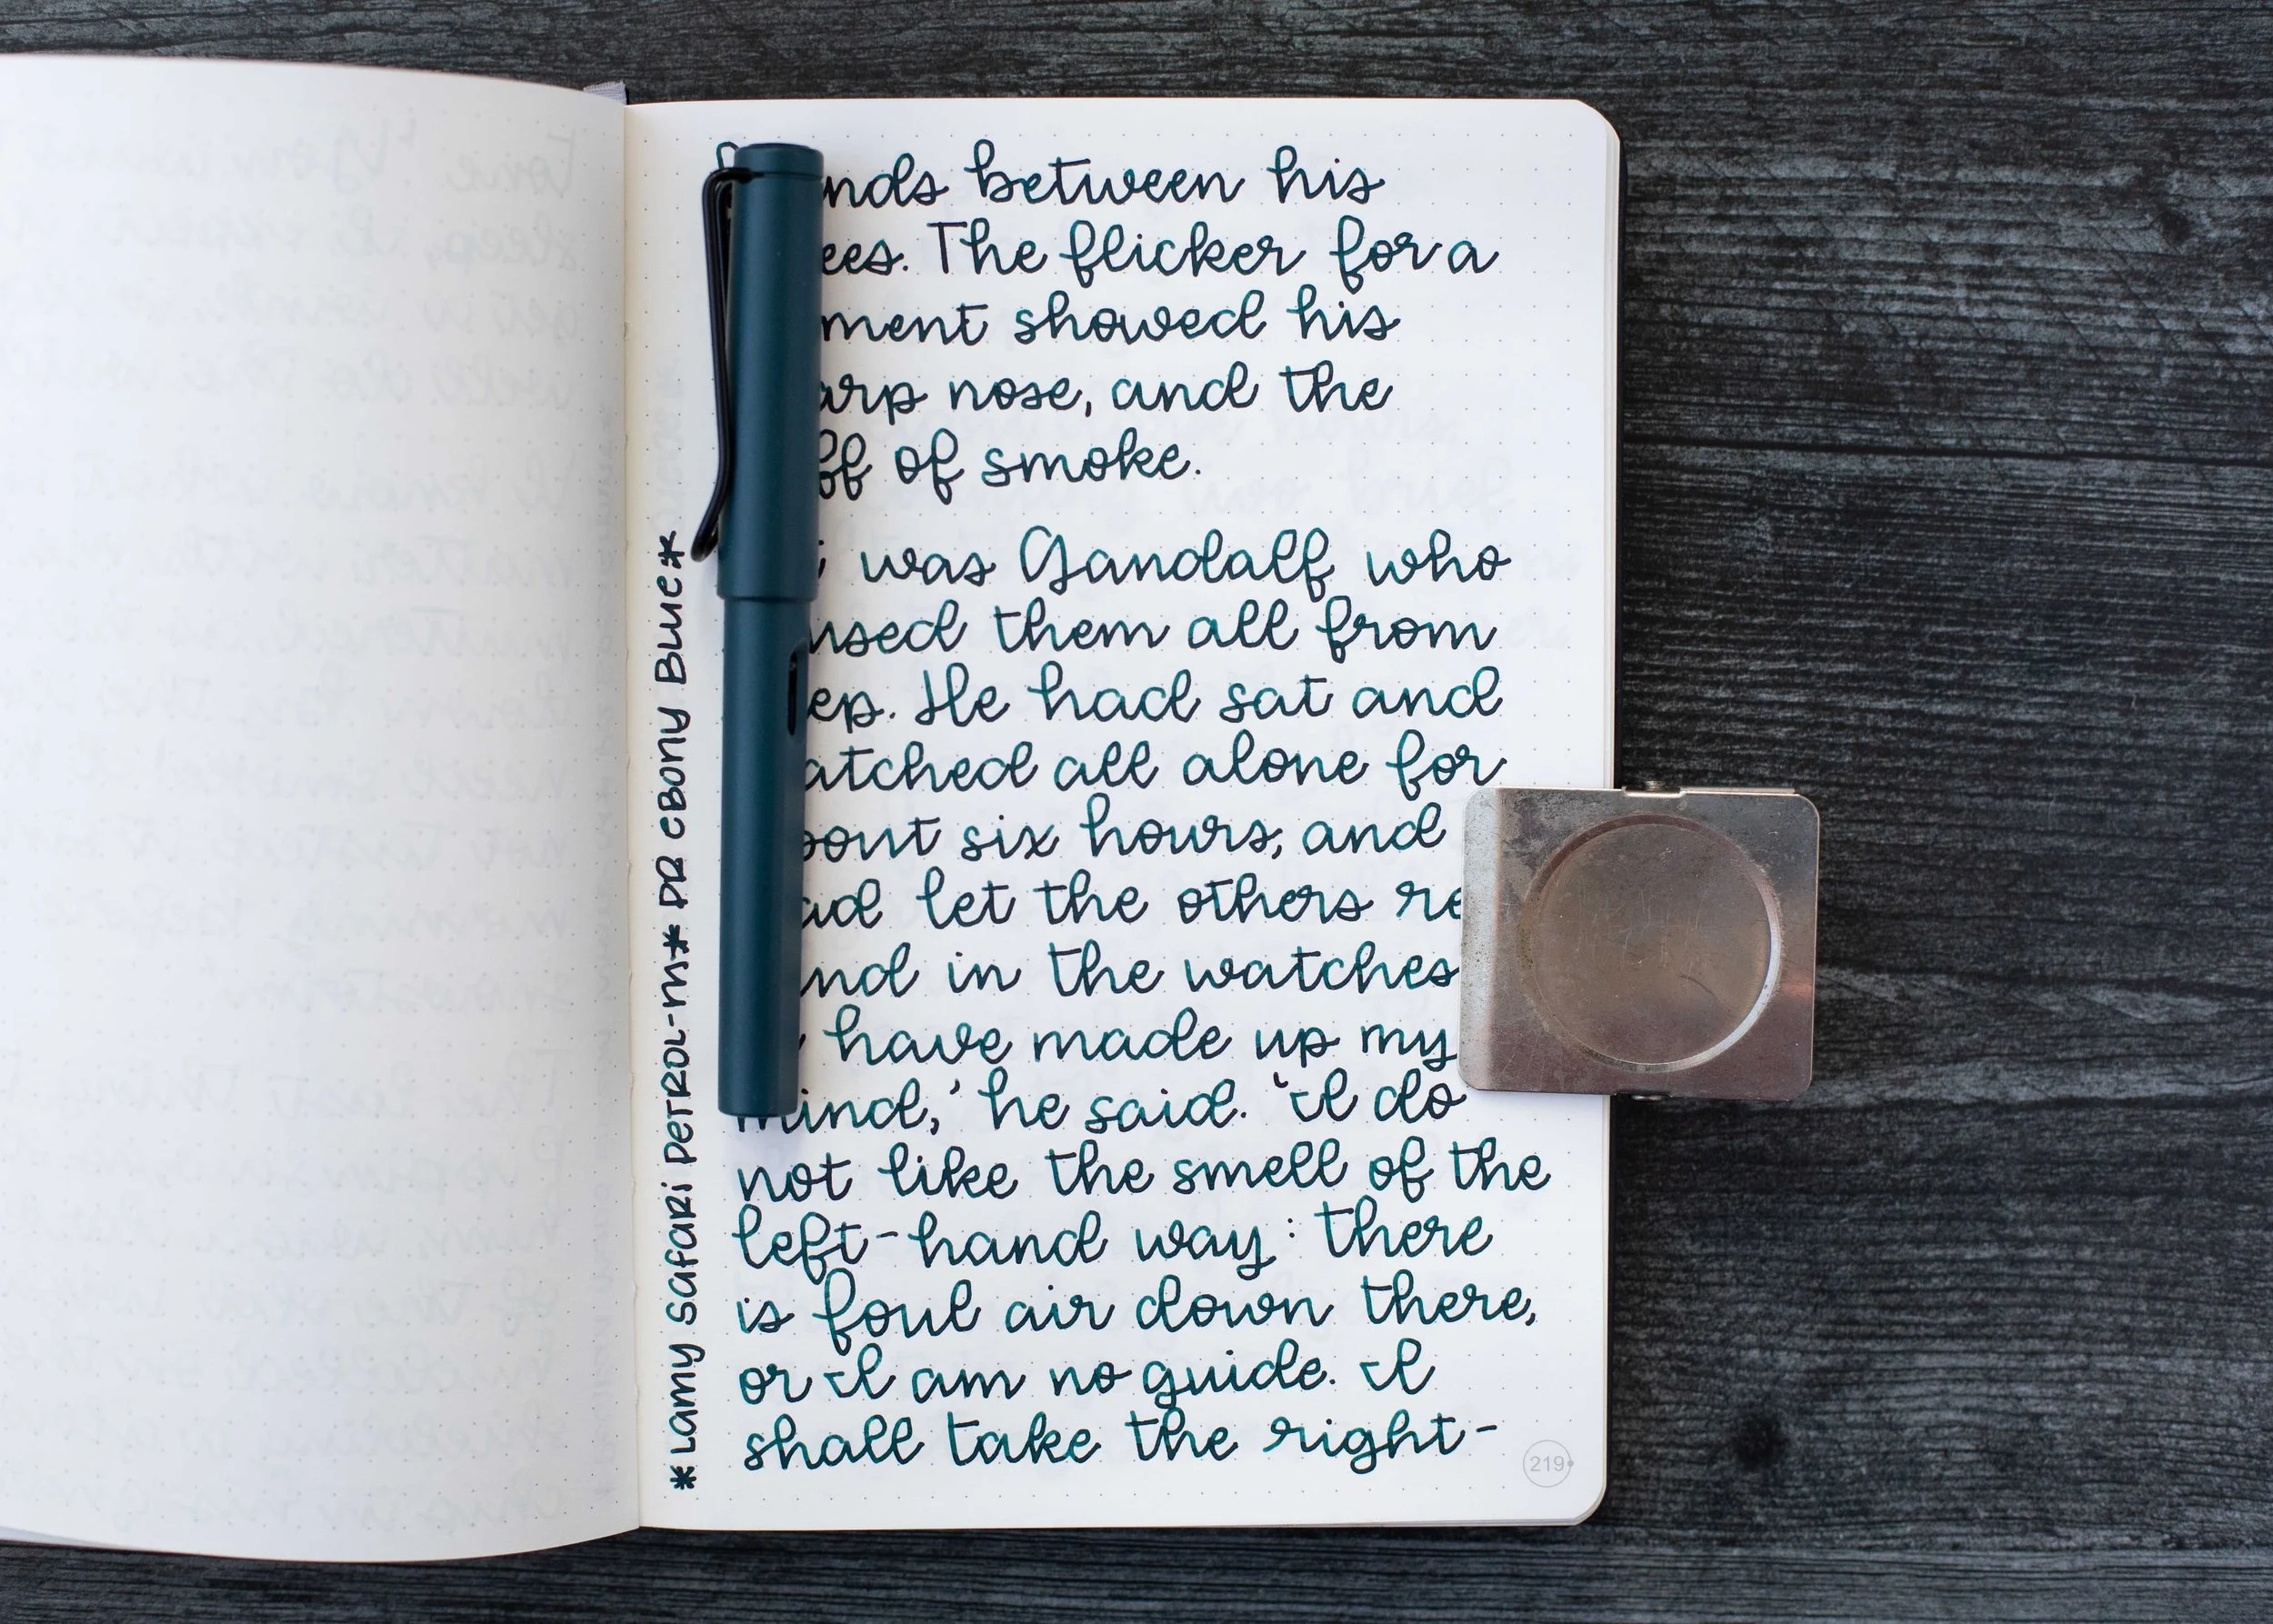 nds between his
ees. The flicker for a
ment showed his
arp nose, and the
ff of smoke.
was Gandalf who
used them all from
ep. He had sat and
atched all alone for
bout six hours, and
ad let the others re
nd in the watches
I have made up my
mind,' he said. 'I do
not like the smell of the
left-hand way: there
is foul air down there,
or I am no guide. I
shall take the right-
219
*Lamy Safari Petrol-M* PR Ebony Blue*